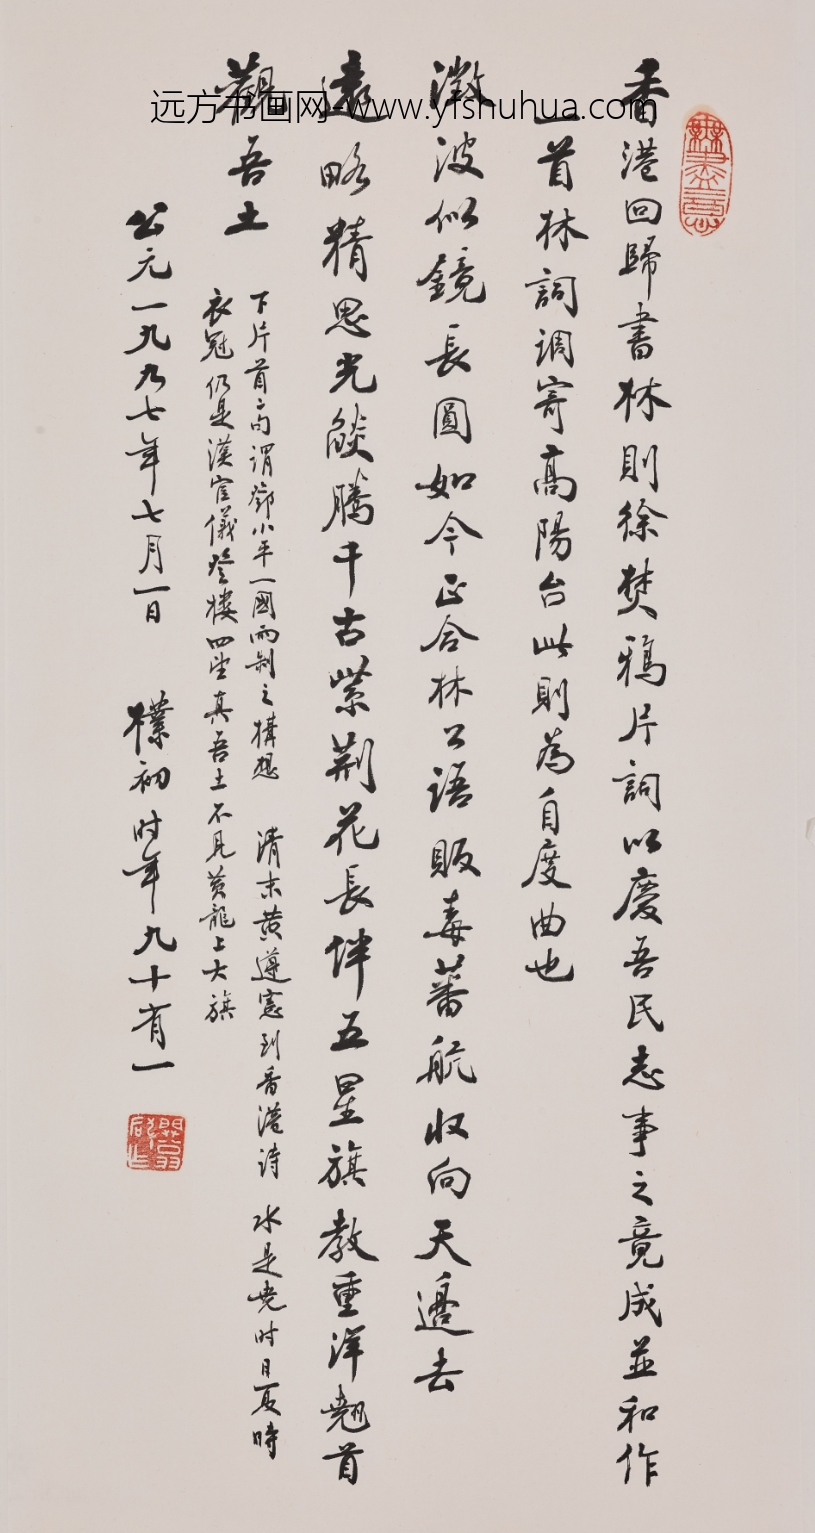 远方书画网-www.yfshuhua.com
無盡意
香港回歸書林則徐焚鴉片詞以慶吾民志事之竟成並和作
一首林詞調寄高陽台此則為自度曲也
澂波似鏡長圓如今正合林公語販毒蕃航收向天邊去
遠略精思光燄騰千古紫荊花長伴五星旗教重洋翹首
觀吾土
下片首二句謂鄧小平一國两制之構想 清末黄遵憲到香港诗 水是堯时日夏時
衣冠仍是漢官儀登樓四望真吾土不見黃龍上大旗
公元一九九七年七月一日 樸初时年九十有一